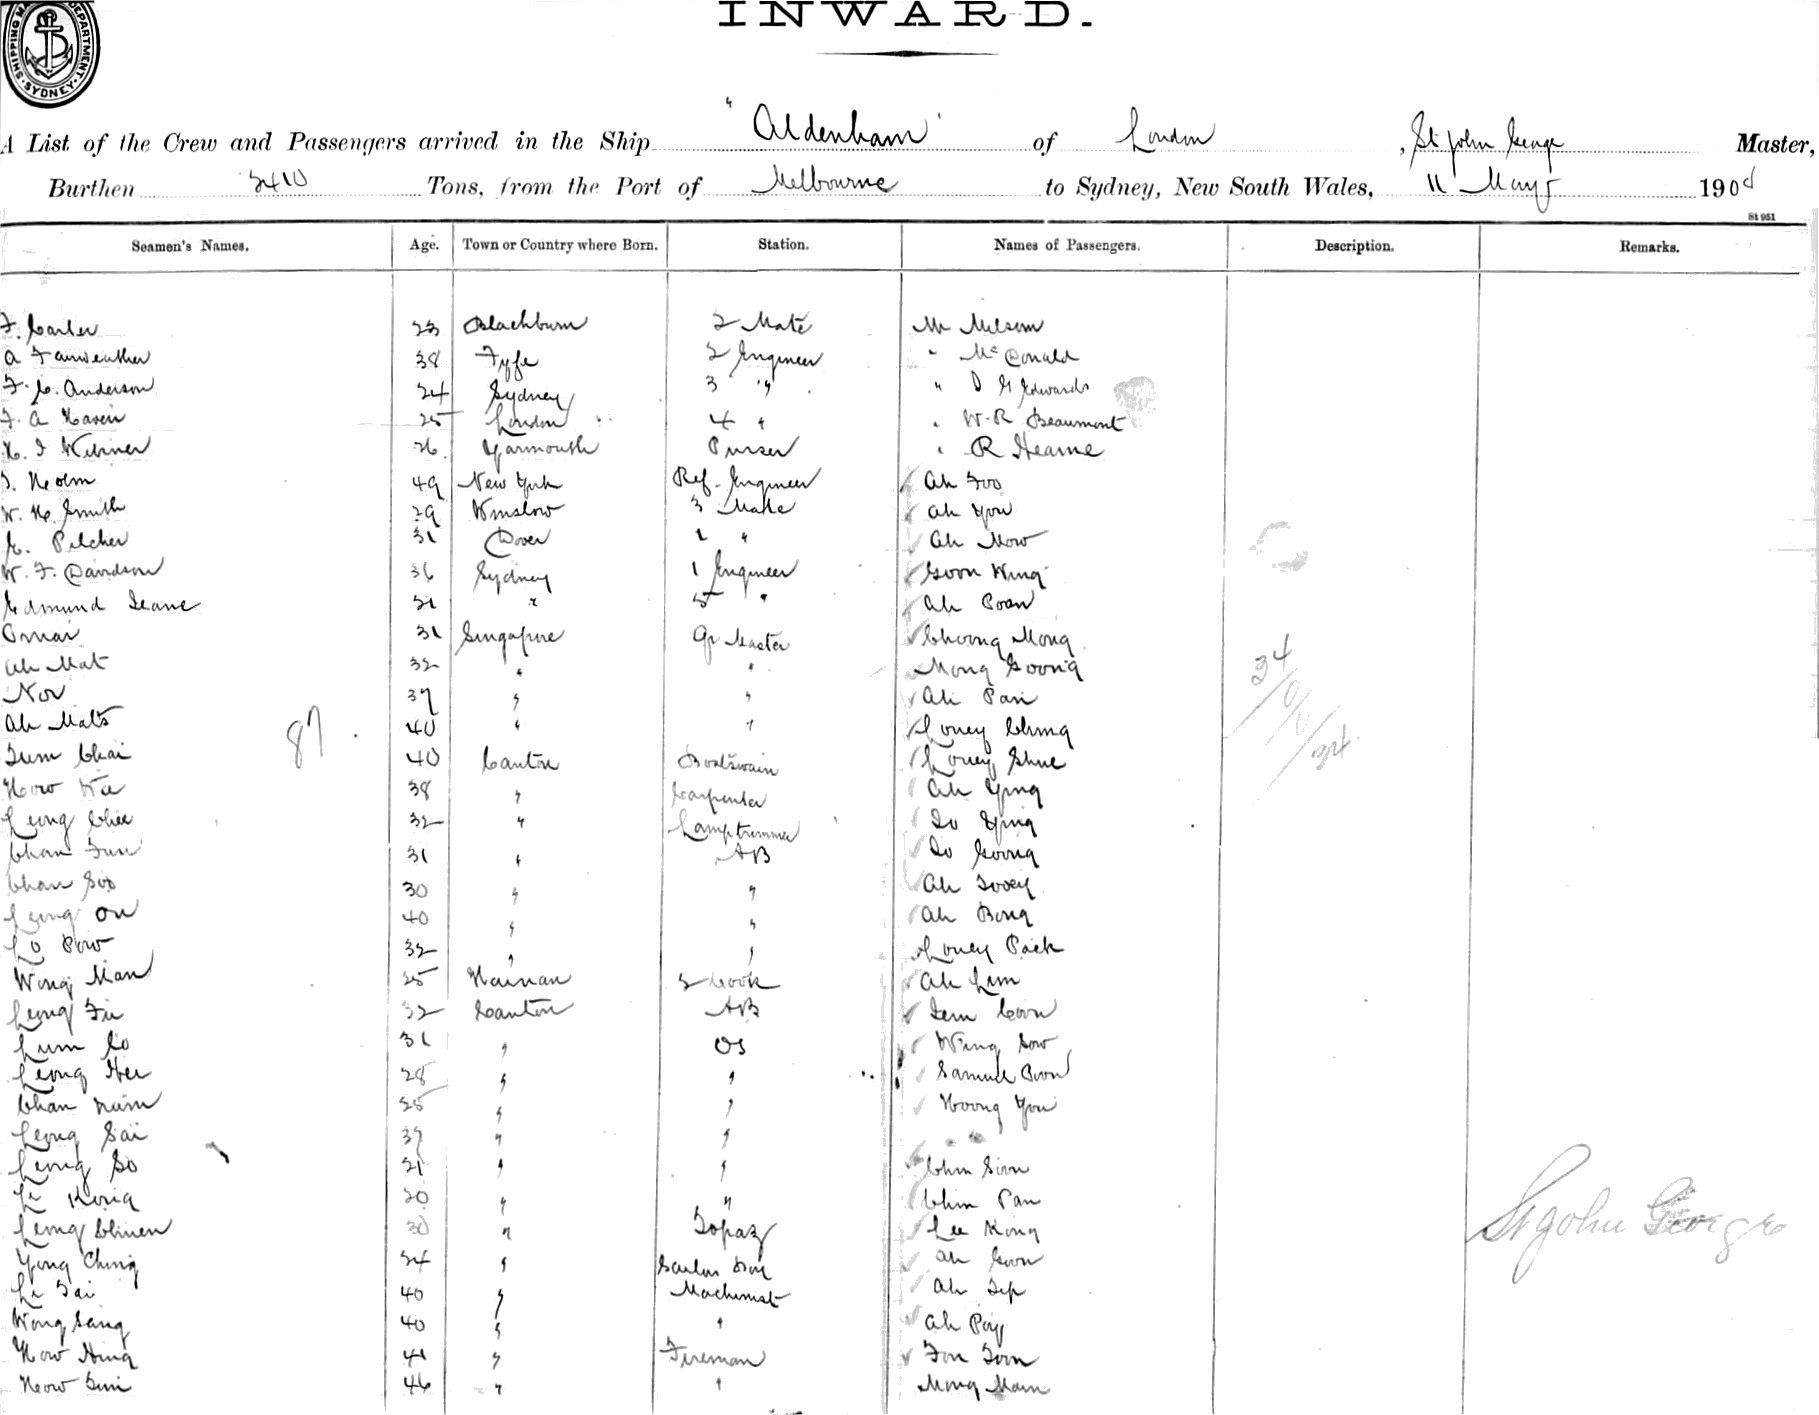 INWARD.
SHIPPING MA DEPARTMENT. SYDNEY.
A List of the Crew and Passengers arrived in the Ship "Aldenham" of London, St John George Master,
Burthen 3410 Tons, from the Port of Melbourne to Sydney, New South Wales, 11 May 190
St 951
Seamen's Names. Age. Town or Country where Born. Station. Names of Passengers. Description. Remarks.
F. Carter 23 Blackburn 2 Mate Mr Milsom
A Fairweather 38 Fyfe 2 Engineer " McDonald
F. C. Anderson 24 Sydney 3 " " D G Edwards
F. A Haven 25 London 4 " " W. R Beaumont
H. J 26 Yarmouth Purser " R Hearne
J. Holm 49 New York Ref. Engineer Ah Foo
W. H. Smith 29 Winslow 3 Mate Ah You
E. Pilcher 31 Dover 1 " Ah Mow
W. F. Davidson 36 Sydney 1 Engineer Goon Wing
Edmund Deane 21 " 5 " Ah Poan
Omar 31 Singapore Qr Master Choong Mong
Ah Mat 32 " " Mong Goong
Nor 37 " " Ah Pan
Ah Mats 40 " " Loney Ching
87
34
34
Tum Chai 40 Canton Boatswain Loney Shue
How Wa 38 " Carpenter Ah Ying
Leung Chee 32 " Lamptrimmer So Ying
Chan Fun 31 " AB So Goong
Chan Soo 30 " " Ah Sooey
Leung On 40 " " Ah Bong
Lo Pow 32 " " Loney Pack
Wong Man 25 Hainan 2 Cook Ah Lim
Leong Fu 32 Canton AB Sem Coon
Lum So 31 " OS Wing Sow
Leong Hee 28 " " Samuel Poon
Chan Num 25 " " Hoong You
Leong Sai 37 " "
Leong So 21 " " Chin Soon
Li Kong 20 " " Chin Pan
Leong Chuen 30 " Topaz Lee Kong
Yong Ching 24 " Saloon Boy Ah Goon
Li Tai 40 " Machinist Ah Yep
Wong Sang 40 " " Ah Pay
How Hing 41 " Fireman Fon Foon
How Sui 46 " " Mong Main
St John George